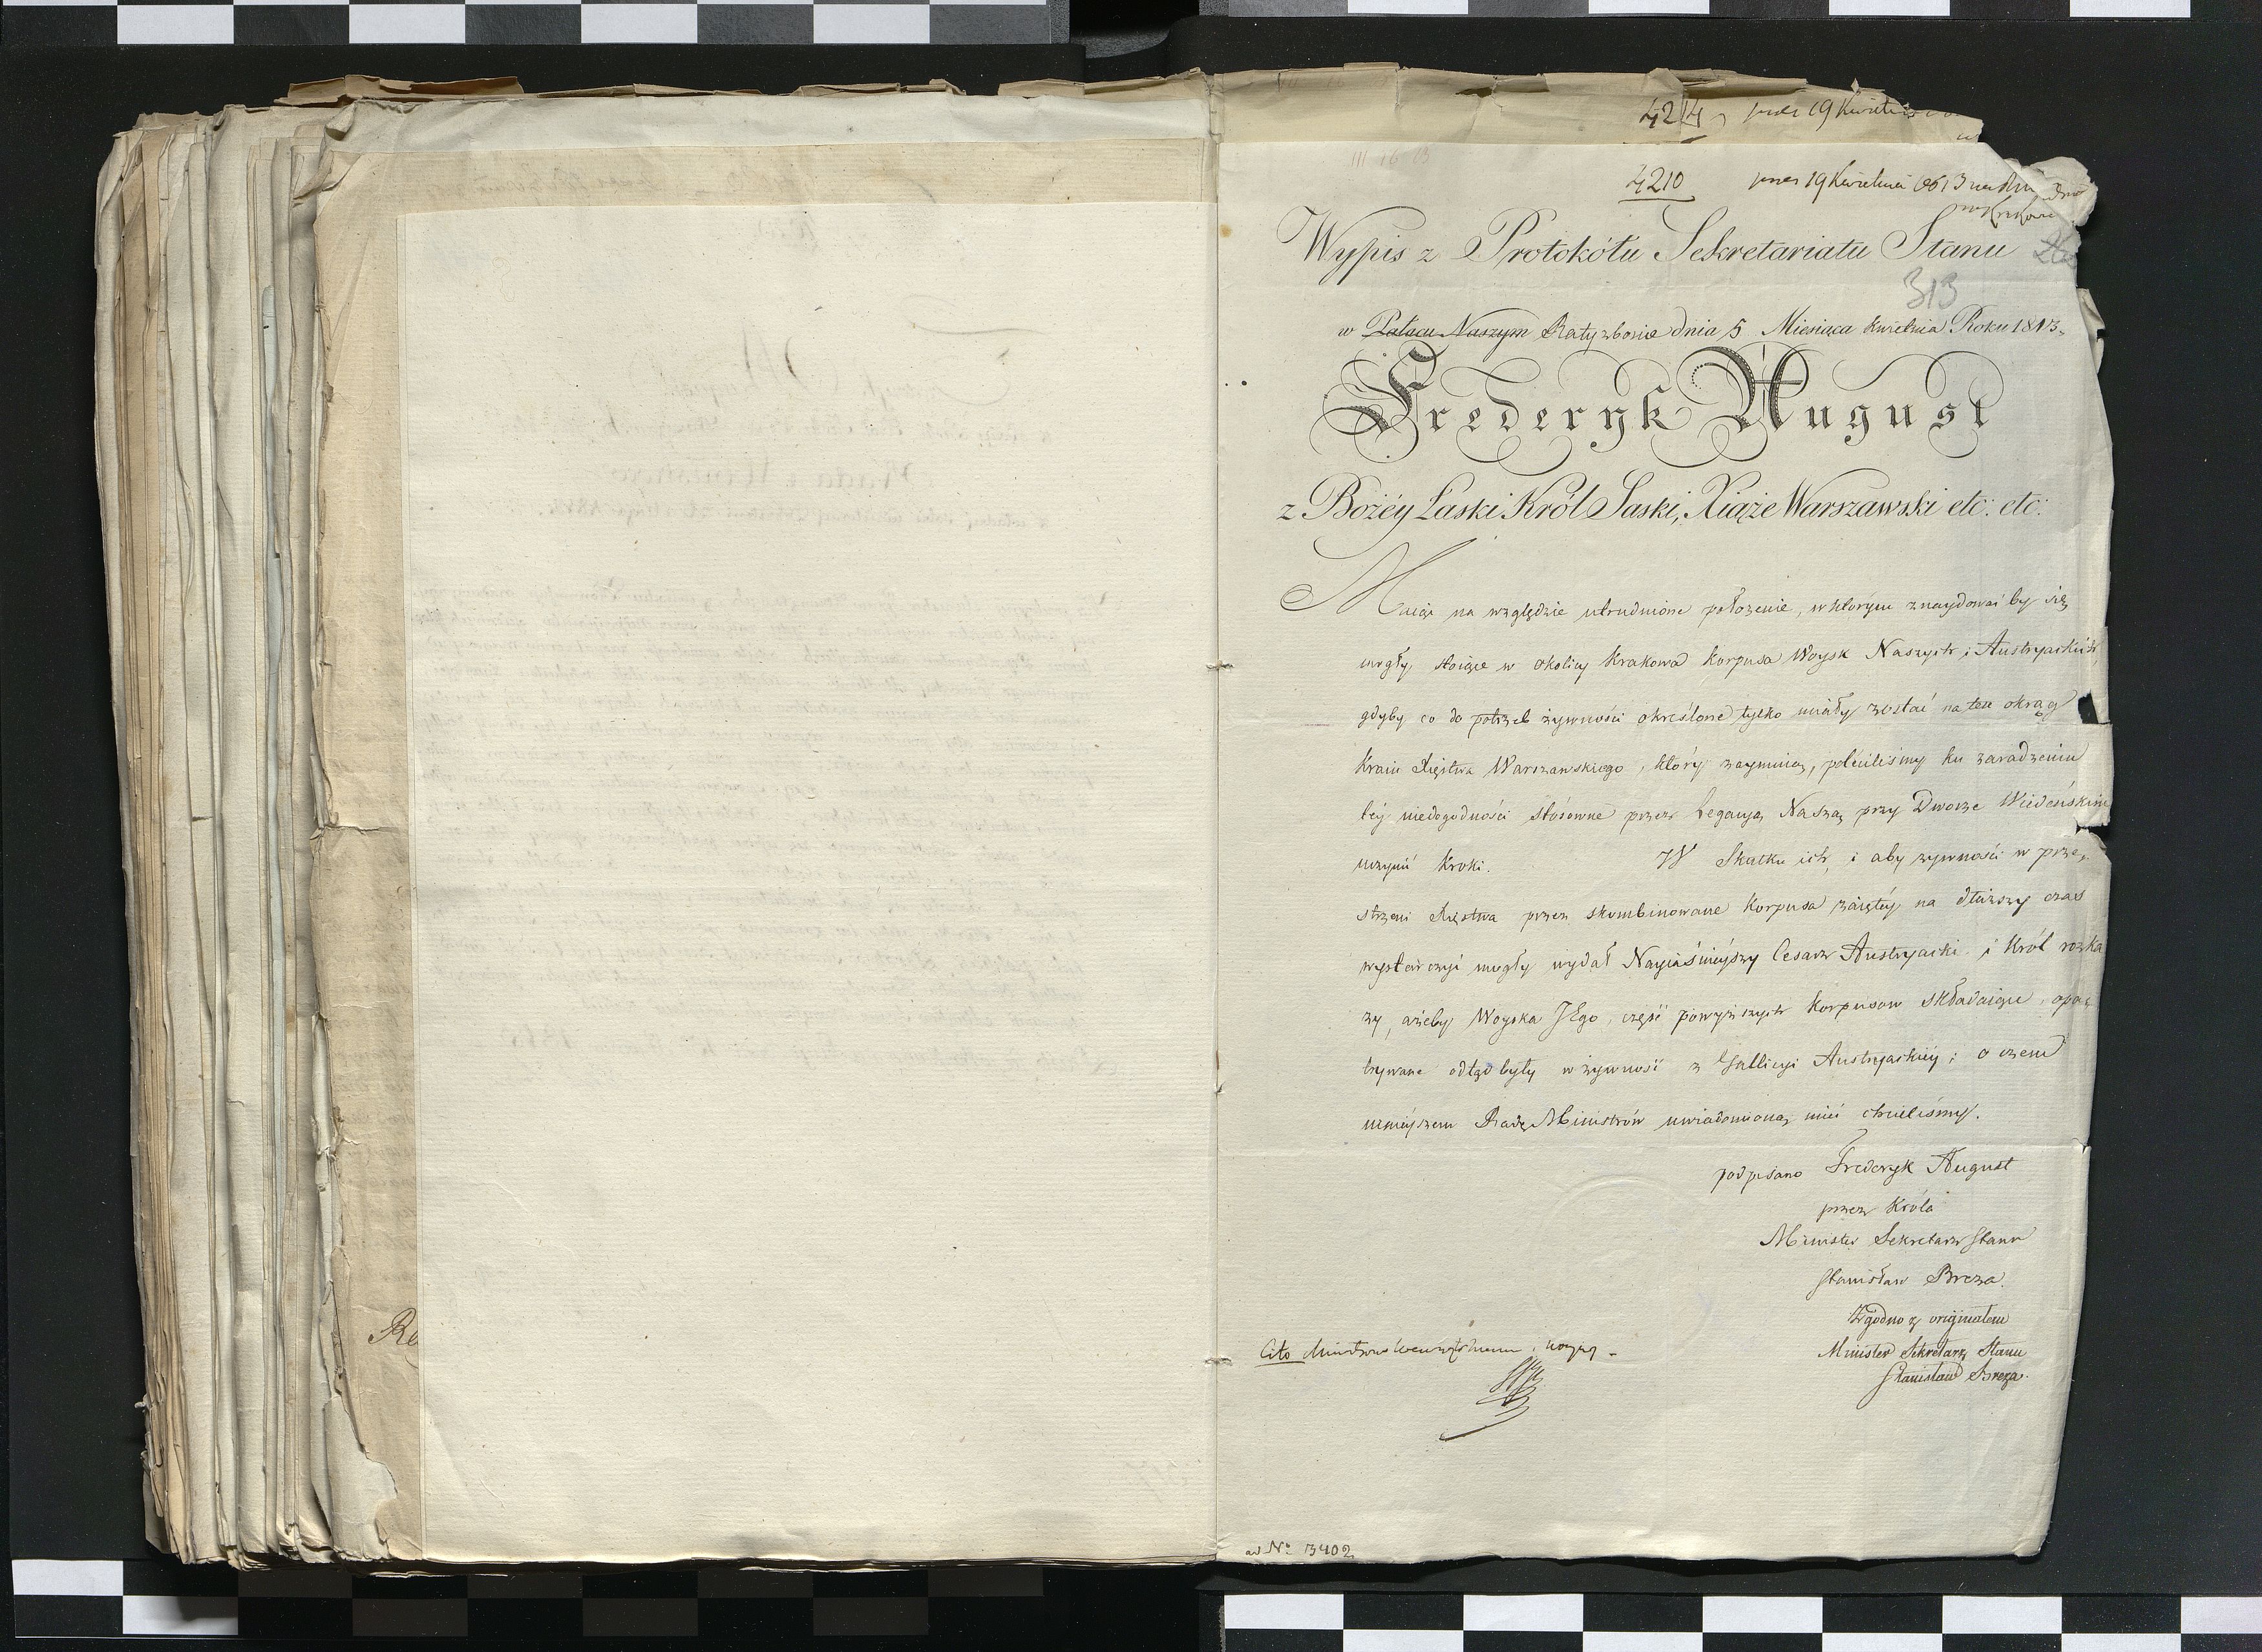 4214
4210 pres 19 Kwietnia 1813
Wypis z Protokółu Sekretariatu Stanu
313
w Pałacu Naszym Ratyzbonie dnia 5 Miesiąca Kwietnia Roku 1813.
Frederyk August
z Bożéy Łaski Król Saski, Xiąże Warszawski etc: etc:
Maiąc na względzie utrudnione położenie, w którym znaydować by się
mogły stoiące w okolicy Krakowa Korpusa Woysk Naszych i Austryackich,
gdyby co do potrzeb żywności określone tylko miały zostać na ten okrąg
Kraiu Xięstwa Warszawskiego, który zaymuią, poleciliśmy ku zaradzeniu
téy niedogodności stósowne przez Legacyą Naszą przy Dworze Wiedeńskim
uczynić Kroki. W Skutku ich, i aby żywności w prze,
strzeni Xięstwa przez skombinowane Korpusa zaiętéy na dłuższy czas
wystarczyć mogły wydał Nayiaśnieyszy Cesarz Austryacki i Król rozka
zy, ażeby Woyska JEgo, część powyższych Korpusow składaiące, opa,
trywane odtąd były w żywność z Gallicyi Austryackiéy; o czem
ninieyszem Radę Ministrów uwiadomioną mieć chcieliśmy.
podpisano Frederyk August
przez Króla
Minister Sekretarz Stanu
Stanisław Breza.
Zgodno z originałem
Minister Sekretarz Stanu
Stanisław Breza.
Cito
ad No 3402